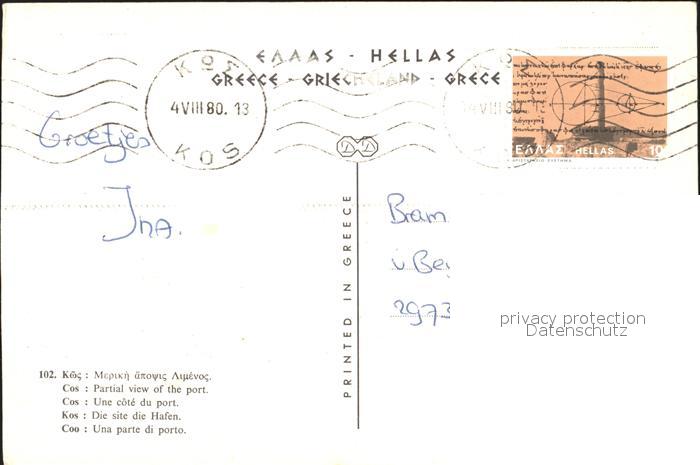 ΕΛΛΑΣ - HELLAS
GREECE - GRIECHELAND - GRECE
ΚΩΣ
4 VIII 80. 13
KOS
ΕΛΛΑΣ HELLAS 10
ΑΡΙΣΤΑΡΧΕΙΟ ΣΥΣΤΗΜΑ
Groetjes
Ina.
Bram
v Be
2973
PRINTED IN GREECE
privacy protection
Datenschutz
102. Κῶς : Μερικὴ ἄποψις Λιμένος.
Cos : Partial view of the port.
Cos : Une côté du port.
Kos : Die site die Hafen.
Coo : Una parte di porto.